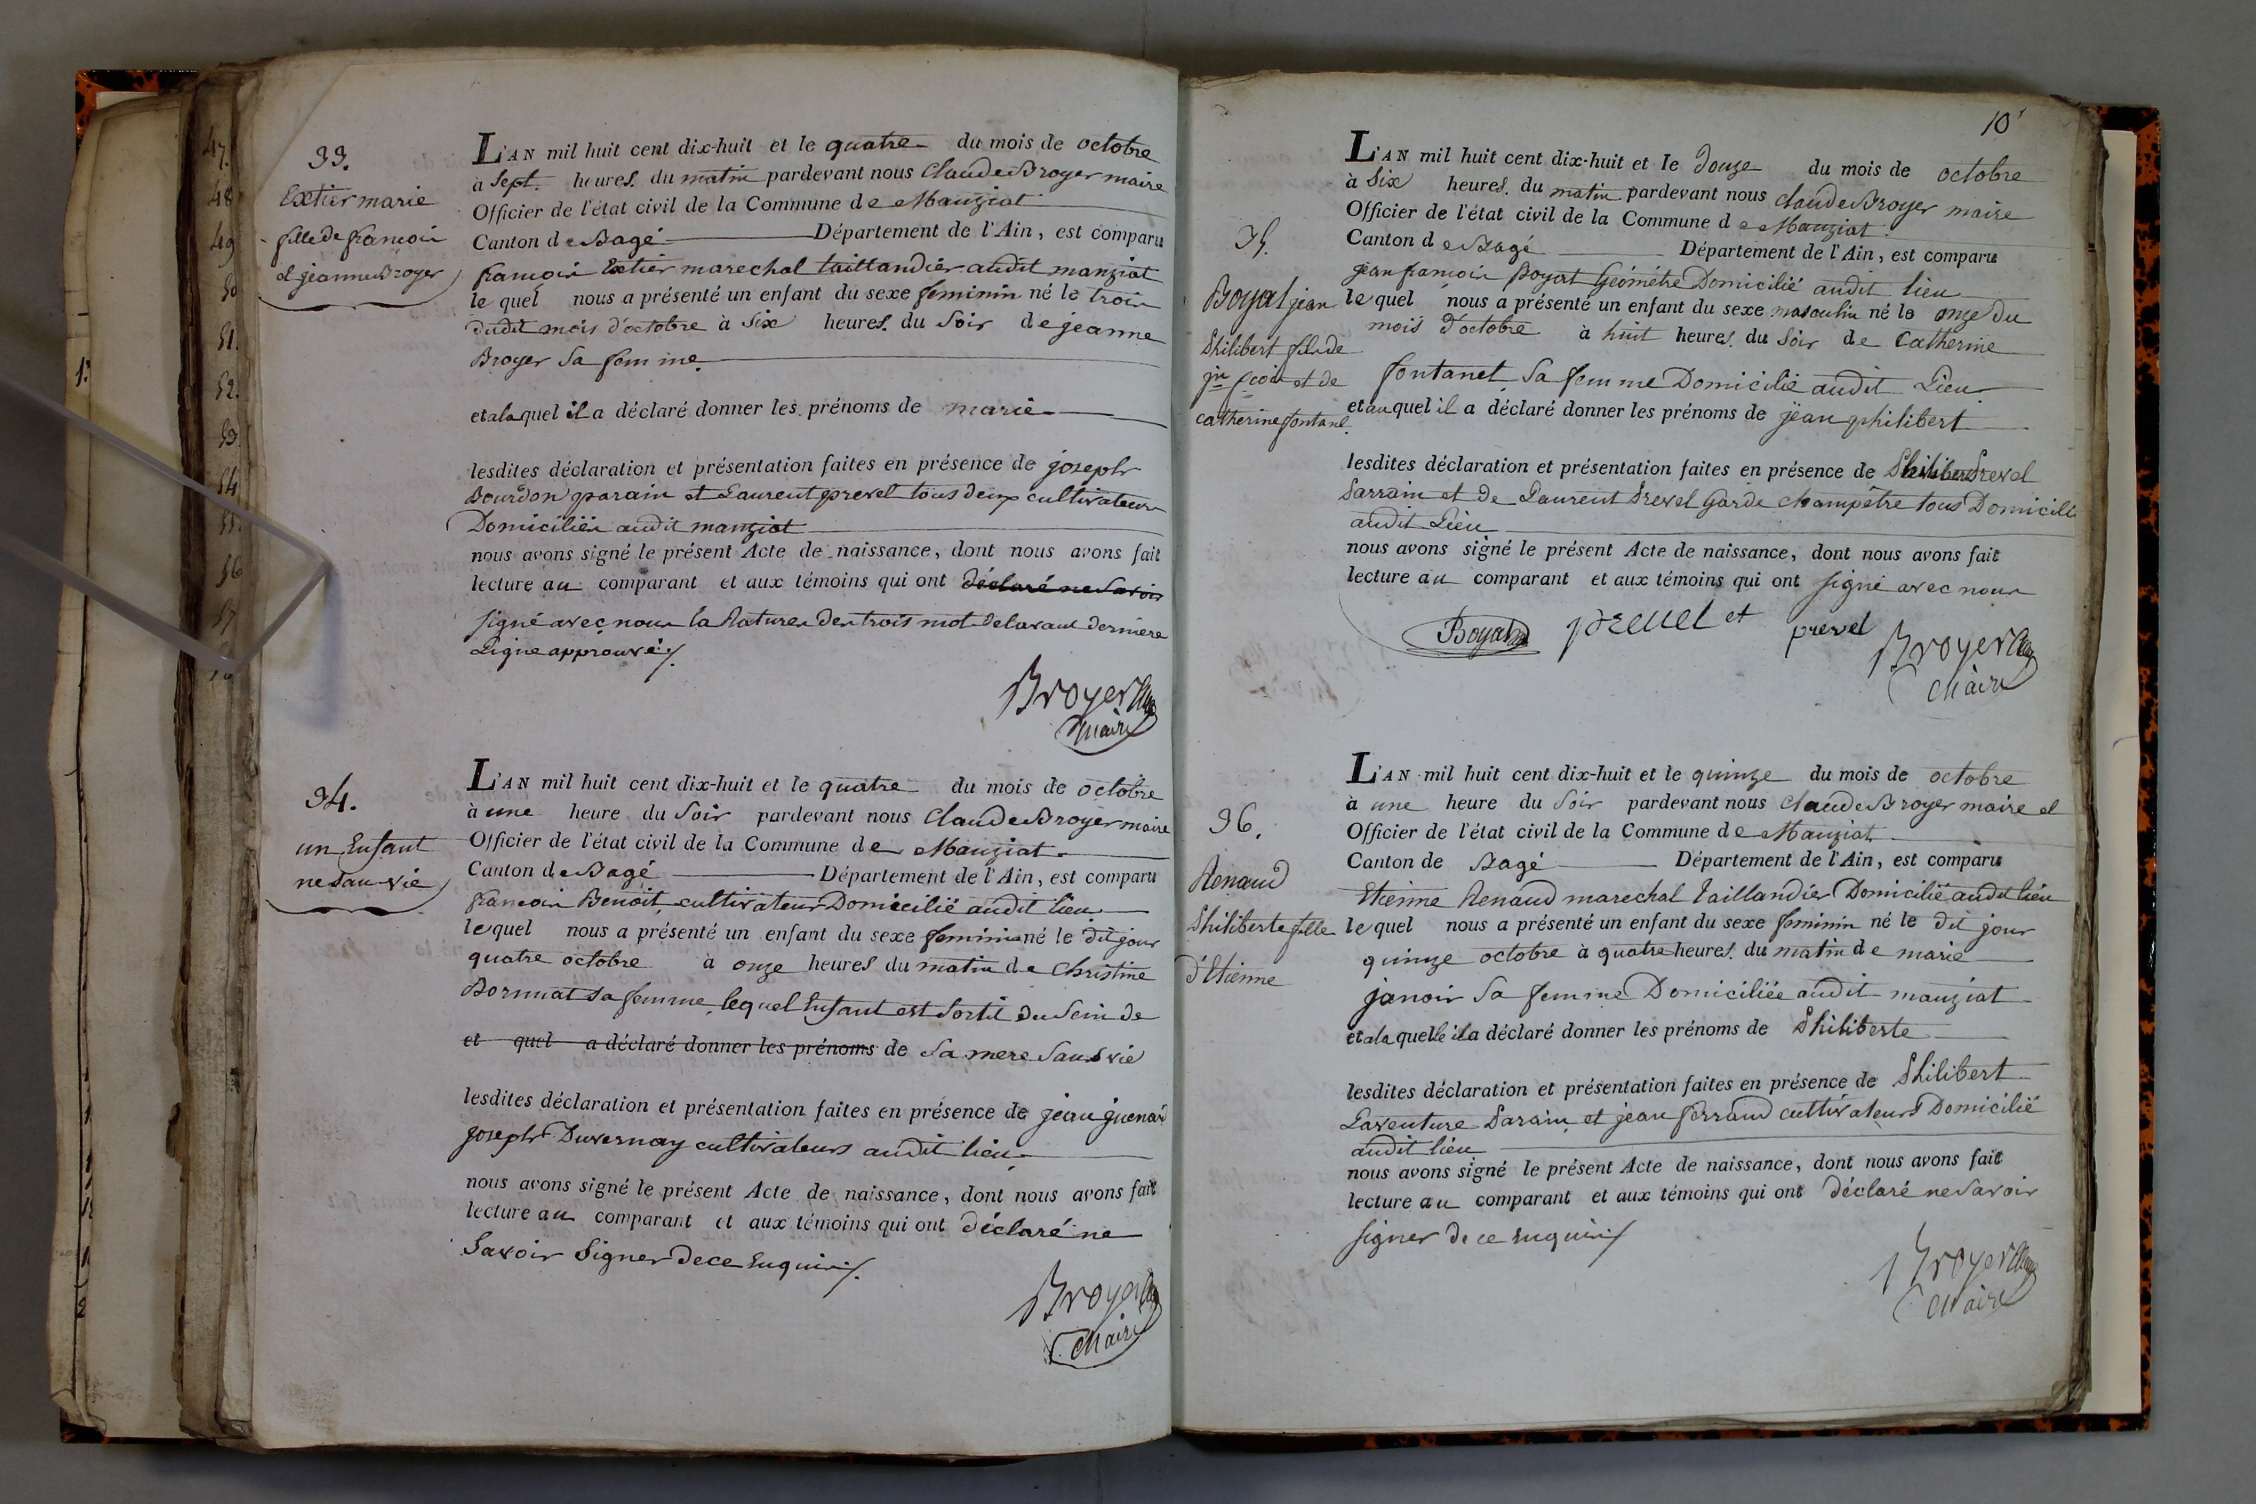 47.
48
49
50
51.
52.
53.
54
55.
56
57
13
33.
Extier marie
fille de françois
et jeanne Broyer
L'AN mil huit cent dix-huit et le quatre du mois de octobre
à Sept. heures. du matin pardevant nous Claude Broyer maire
Officier de l'état civil de la Commune de Manziat
Canton de Bagé Département de l'Ain, est comparu
françois Extier marechal taillandier audit manziat
lequel nous a présenté un enfant du sexe feminin né le trois
dudit mois d'octobre à Six heures. du Soir de jeanne
Broyer Sa femme.
et a laquel il a déclaré donner les prénoms de marie
lesdites déclaration et présentation faites en présence de joseph
Bourdon parain et Laurent prevel tous deux cultivateurs
Domiciliés audit manziat
nous avons signé le présent Acte de naissance, dont nous avons fait
lecture au comparant et aux témoins qui ont déclaré ne Savoir
signé avec nous la Rature des trois mot de lavant derniere
Ligne approuvé./.
Broyer
Maire
34.
un Enfant
né Sans vie
L'AN mil huit cent dix-huit et le quatre du mois de octobre
à une heure du Soir pardevant nous Claude Broyer maire
Officier de l'état civil de la Commune de Manziat
Canton de Bagé Département de l'Ain, est comparu
françois Benoit, cultivateur Domicilié audit lieu
lequel nous a présenté un enfant du sexe feminin né le dit jour
quatre octobre à onze heures du matin de Christine
Bornuat Sa femme, lequel Enfant est Sortit du Sein de
et quel a déclaré donner les prénoms de Sa mere Sans vie
lesdites déclaration et présentation faites en présence de jean guenard
joseph Duvernay cultivateurs audit lieu
nous avons signé le présent Acte de naissance, dont nous avons fait
lecture au comparant et aux témoins qui ont déclaré ne
Savoir Signer de ce Enquis./.
Broyer
Maire
10
35.
Boyat jean
Philibert fils de
jn fçois et de
catherine fontanel.
L'AN mil huit cent dix-huit et le douze du mois de octobre
à Six heures. du matin pardevant nous Claude Broyer maire
Officier de l'état civil de la Commune de Manziat
Canton de Bagé Département de l'Ain, est comparu
jean françois Boyat Géométre Domicilié audit lieu
lequel nous a présenté un enfant du sexe masculin né le onze du
mois d'octobre à huit heures. du Soir de Catherine
fontanet Sa femme Domicilié audit Lieu
et auquel il a déclaré donner les prénoms de jean philibert
lesdites déclaration et présentation faites en présence de Philibert Prevel
Parrain et de Laurent Prevel Garde champêtre tous Domicilié
audit Lieu
nous avons signé le présent Acte de naissance, dont nous avons fait
lecture au comparant et aux témoins qui ont signé avec nous
Boyat prevel et prevel Broyer
Maire
36.
Renaud
Philiberte fille
d'Etienne
L'AN mil huit cent dix-huit et le quinze du mois de octobre
à une heure du Soir pardevant nous Claude Broyer maire et
Officier de l'état civil de la Commune de Manziat
Canton de Bagé Département de l'Ain, est comparu
Etienne Renaud marechal Taillandier Domicilié audit lieu
lequel nous a présenté un enfant du sexe feminin né le dit jour
quinze octobre à quatre heures. du matin de marie
janoir Sa femme Domiciliée audit manziat
et a laquelle il a déclaré donner les prénoms de Philiberte
lesdites déclaration et présentation faites en présence de Philibert
Laventure Parain et jean ferrand cultivateurs Domicilié
audit lieu
nous avons signé le présent Acte de naissance, dont nous avons fait
lecture au comparant et aux témoins qui ont déclaré ne Savoir
signer de ce Enquis./
Broyer
Maire